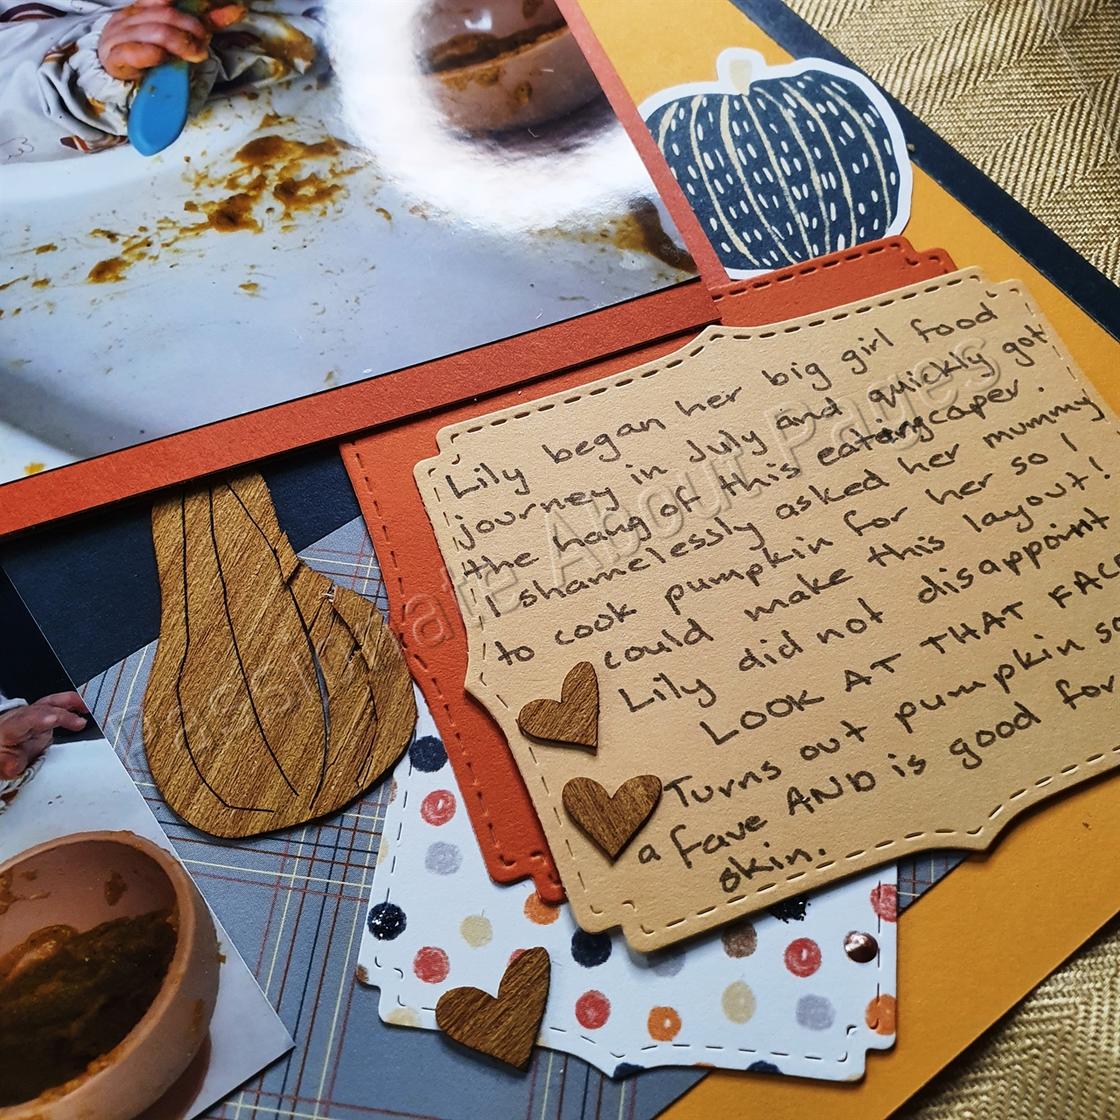 Lily began her big girl food
journey in July and quickly got
the hang of this eating caper.
I shamelessly asked her mummy
to cook pumpkin for her so I
could make this layout!
Lily did not disappoint
LOOK AT THAT FACE
Turns out pumpkin
a fave AND is good for
skin.
About Pages